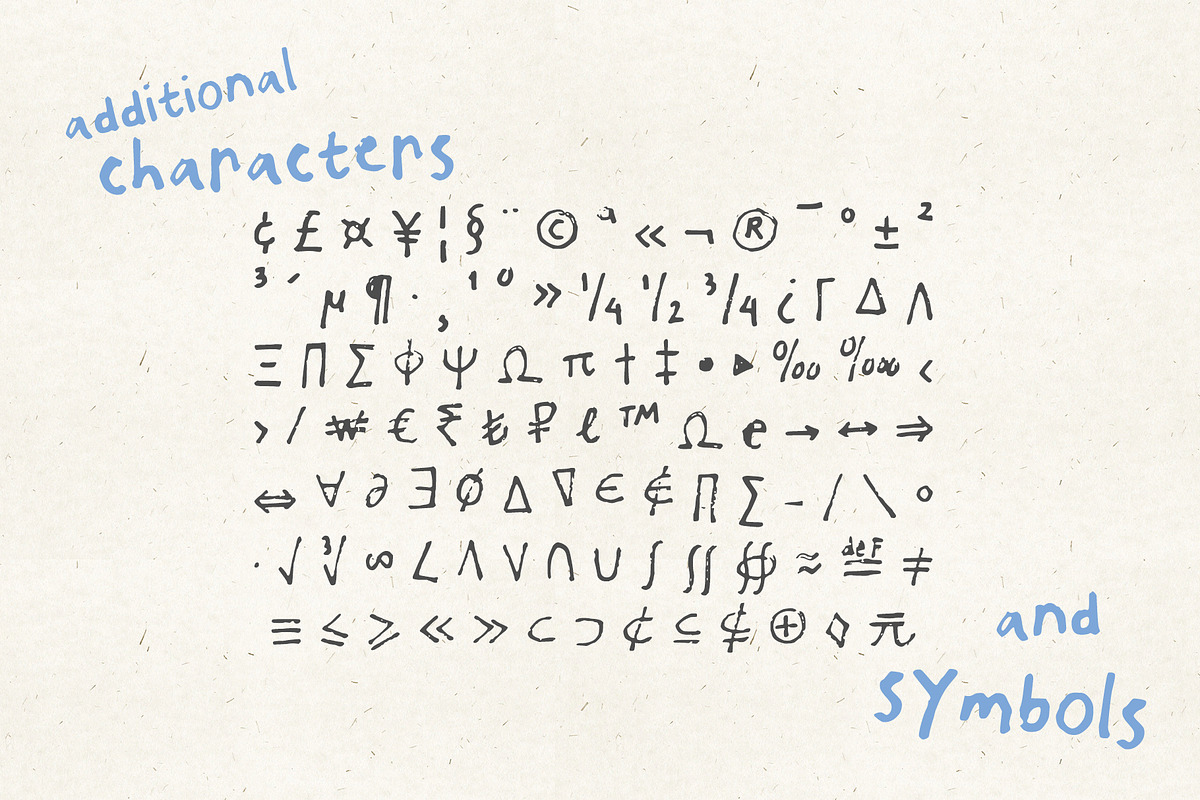 additional
characters
¢ £ ¤ ¥ ¦ § ¨ © ª « ¬ ® ¯ ° ± ²
³ ´ µ ¶ · ¸ ¹ º » ¼ ½ ¾ ¿ Γ Δ Λ
Ξ Π Σ Φ Ψ Ω π † ‡ • ‣ ‰ ‱ ‹
› ⁄ ₩ € ₹ ₺ ₽ ℓ ™ Ω ℮ → ↔ ⇒
⇔ ∀ ∂ ∃ ∅ ∆ ∇ ∈ ∉ ∏ ∑ − ∕ ∖ ∘
∙ √ ∛ ∞ ∠ ∧ ∨ ∩ ∪ ∫ ∬ ∯ ≈ ≝ ≠
≡ ≤ ≥ ≪ ≫ ⊂ ⊃ ⊄ ⊆ ⊈ ⊕ ◊ 元
and
symbols